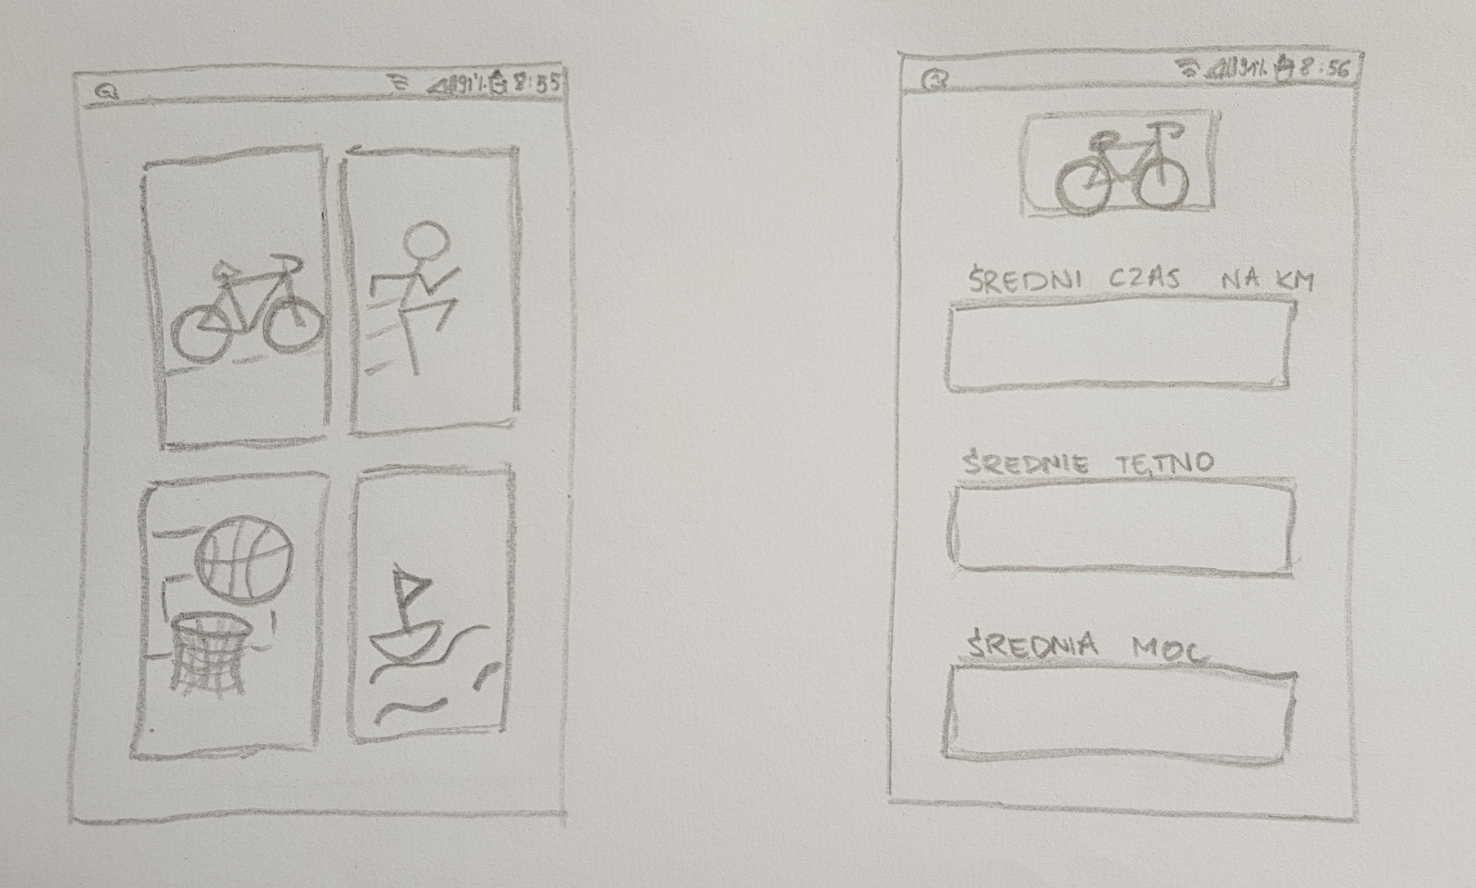 91% 8:55
91% 8:56
ŚREDNI CZAS NA KM
ŚREDNIE TĘTNO
ŚREDNIA MOC